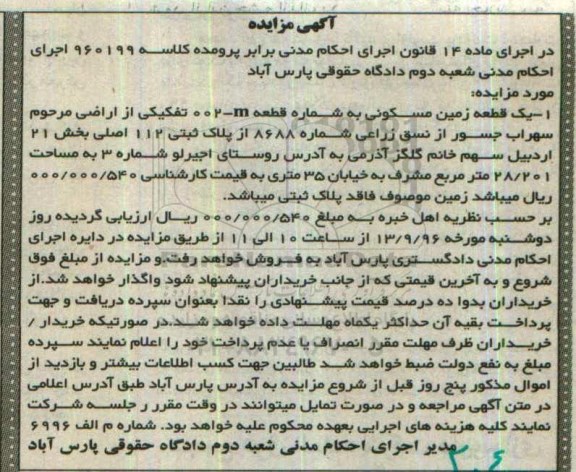 آگهی مزایده
در اجرای ماده ۱۴ قانون اجرای احکام مدنی برابر پرومده کلاسه ۹۶۰۱۹۹ اجرای
احکام مدنی شعبه دوم دادگاه حقوقی پارس آباد
مورد مزایده:
۱-یک قطعه زمین مسکونی به شماره قطعه ۰۰۲-m تفکیکی از اراضی مرحوم
سهراب جسور از نسق زراعی شماره ۸۶۸۸ از پلاک ثبتی ۱۱۲ اصلی بخش ۲۱
اردبیل سهم خانم گلگز آذرمی به آدرس روستای اجیرلو شماره ۳ به مساحت
۲۸/۲۰۱ متر مربع مشرف به خیابان ۳۵ متری به قیمت کارشناسی ۰۰۰/۰۰۰/۵۴۰
ریال میباشد زمین موصوف فاقد پلاک ثبتی میباشد.
بر حسب نظریه اهل خبره به مبلغ ۰۰۰/۰۰۰/۵۴۰ ریال ارزیابی گردیده روز
دوشنبه مورخه ۱۳/۹/۹۶ از ساعت ۱۰ الی ۱۱ از طریق مزایده در دایره اجرای
احکام مدنی دادگستری پارس آباد به فروش خواهد رفت.و مزایده از مبلغ فوق
شروع و به آخرین قیمتی که از جانب خریداران پیشنهاد شود واگذار خواهد شد.از
خریداران بدوا ده درصد قیمت پیشنهادی را نقدا بعنوان سپرده دریافت و جهت
پرداخت بقیه آن حداکثر یکماه مهلت داده خواهد شد.در صورتیکه خریدار /
خریداران ظرف مهلت مقرر انصراف یا عدم پرداخت خود را اعلام نمایند سپرده
مبلغ به نفع دولت ضبط خواهد شد طالبین جهت کسب اطلاعات بیشتر و بازدید از
اموال مذکور پنج روز قبل از شروع مزایده به آدرس پارس آباد طبق آدرس اعلامی
در متن آگهی مراجعه و در صورت تمایل میتوانند در وقت مقرر ر جلسه شرکت
نمایند کلیه هزینه های اجرایی بعهده محکوم علیه خواهد بود. شماره م الف ۶۹۹۶
مدیر اجرای احکام مدنی شعبه دوم دادگاه حقوقی پارس آباد